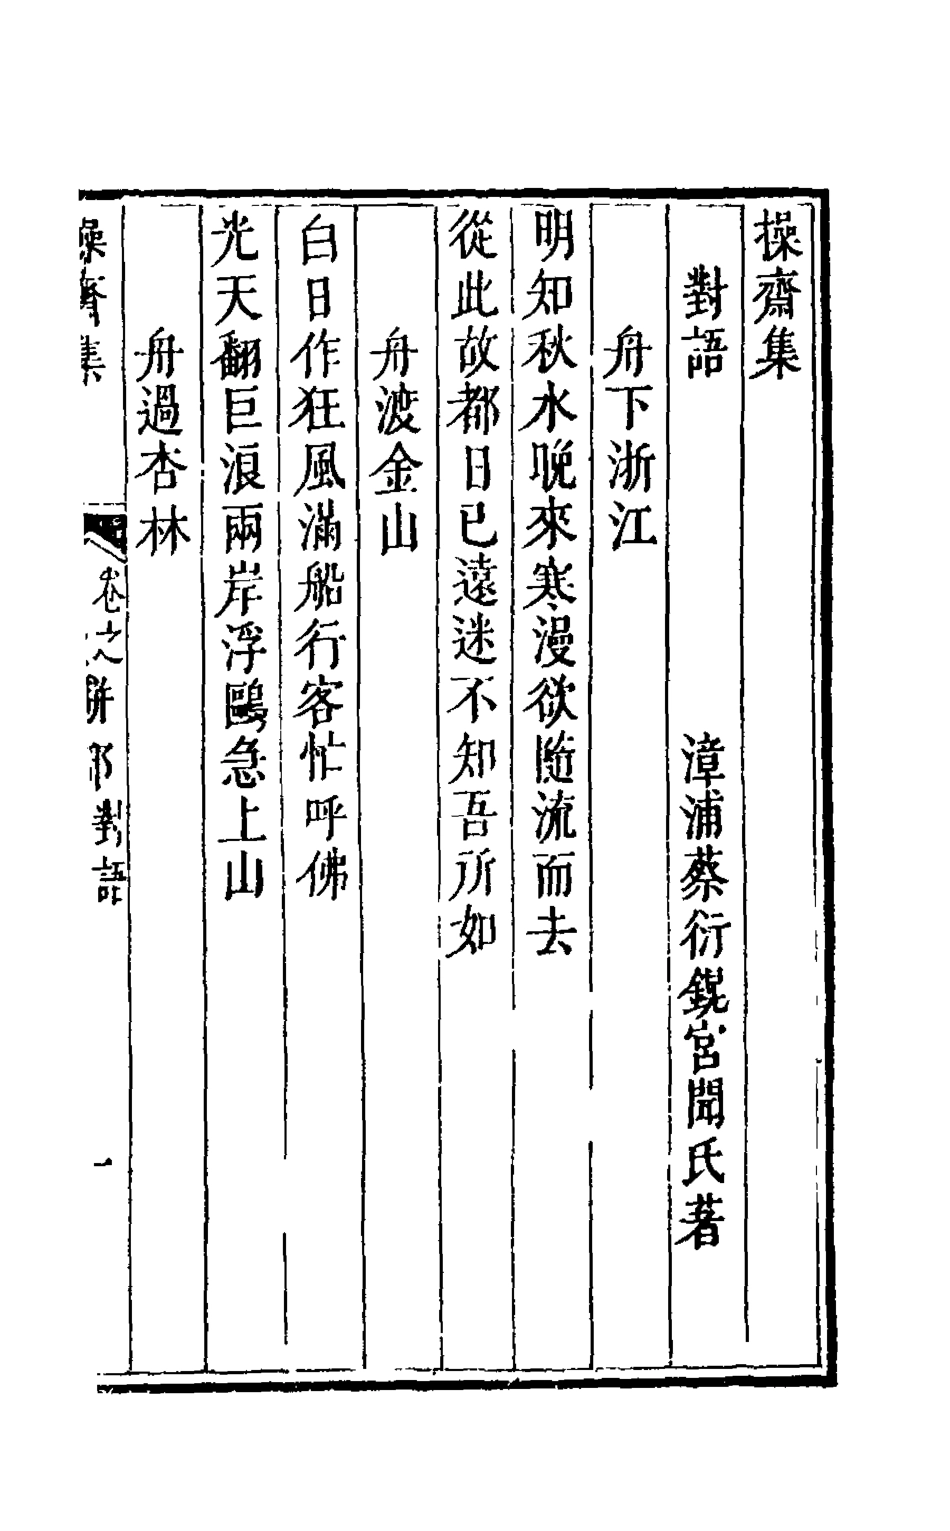 操齋集
對語 漳浦蔡衍鎤宮聞氏著
舟下浙江
明知秋水晚來寒漫欲隨流而去
從此故都日已遠迷不知吾所如
舟渡金山
白日作狂風滿船行客忙呼佛
光天翻巨浪兩岸浮鷗急上山
舟過杏林
操齋集 卷之 駢部對語 一